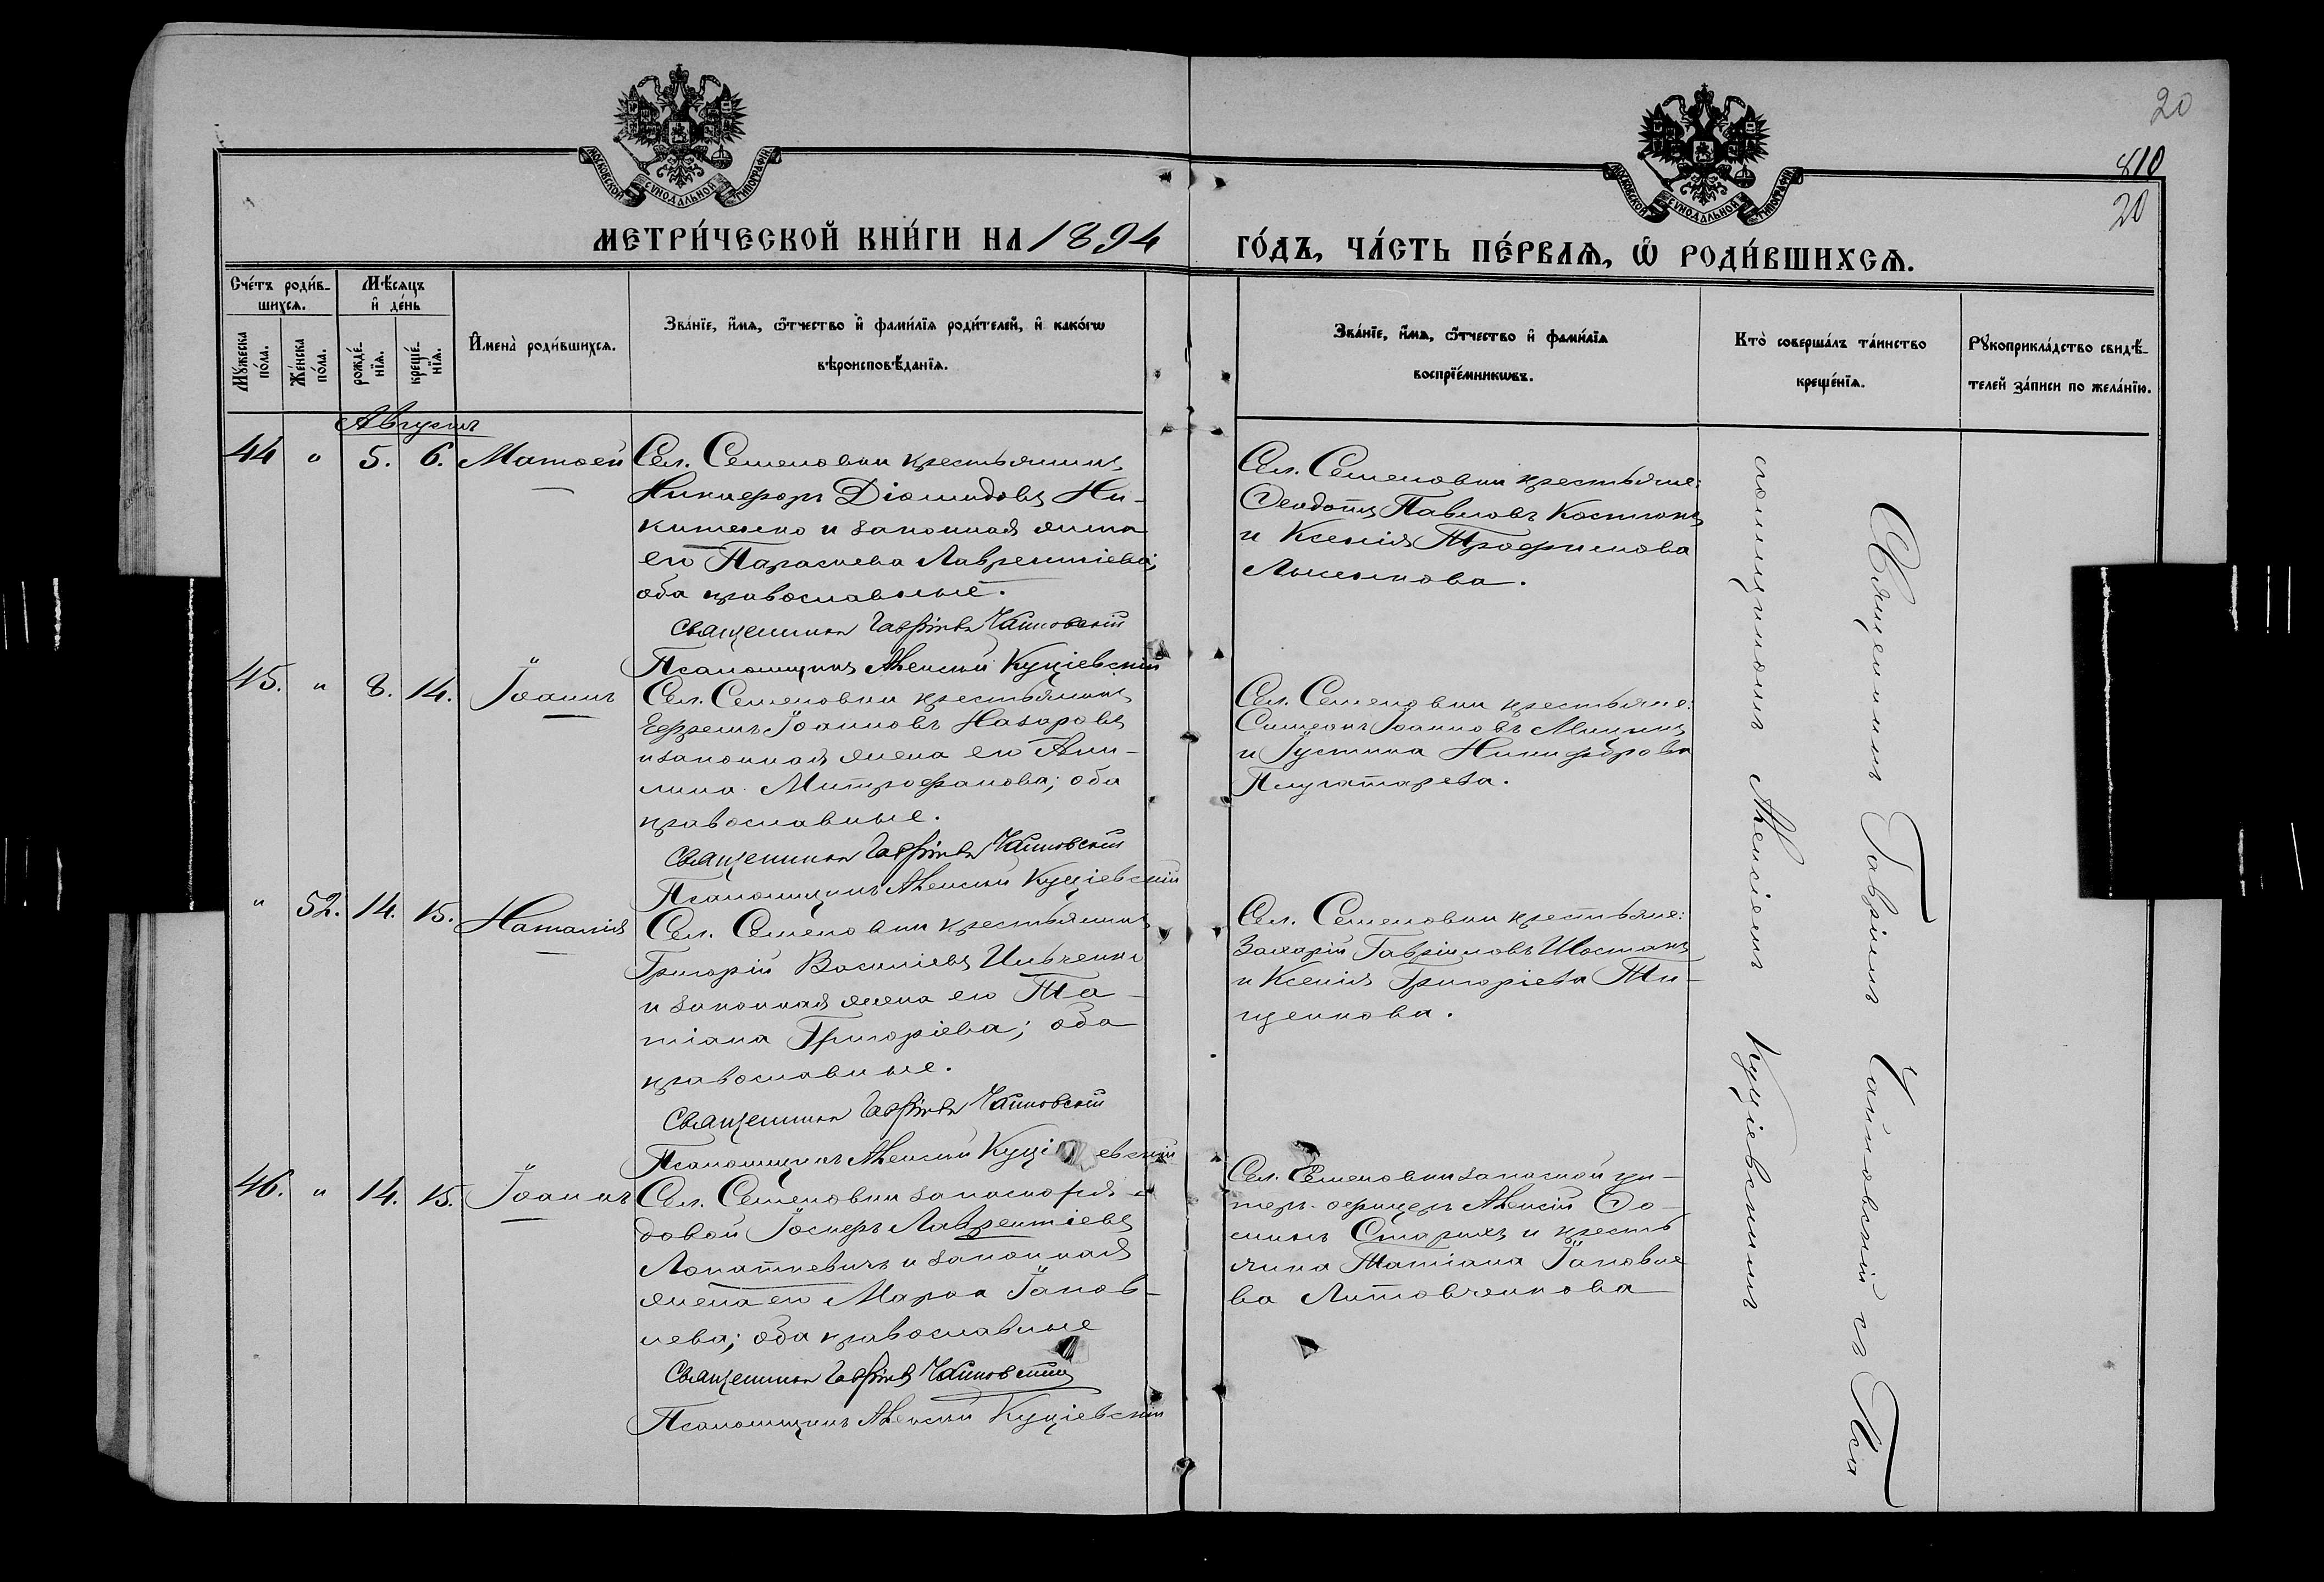 20
810
20
МОСКОВСКОЙ СУНОДАЛЬНОЙ ТИПОГРАФІИ
МОСКОВСКОЙ СУНОДАЛЬНОЙ ТИПОГРАФІИ
МЕТРИ́ЧЕСКОЙ КНИ́ГИ НА 1894
ГО́ДЪ, ЧА́СТЬ ПЕ́РВАѦ, Ѽ РОДИ́ВШИХСѦ.
Сче́тъ роди́в-
шихсѧ.
Мꙋжеска по́ла.
Же́нска по́ла.
Мѣ́сяцъ
и҆ де́нь
рожде́-
нїѧ.
креще́-
нїѧ.
И҆мена̀ роди́вшихсѧ.
Зва́нїе, и҆́мѧ, ѻ҆́тчество и҆ фами́лїѧ роди́телей, и҆ како́гѡ
вѣроисповѣ́данїѧ.
Зва́нїе, и҆́мѧ, ѻ҆́тчество и҆ фами́лїѧ
воспрїе́мникѡвъ.
Кто̀ соверша́лъ та́инство
креще́нїѧ.
Рꙋкоприкла́дство свидѣ́-
телей за́писи по жела́нїю.
Августъ
44 " 5. 6. Матѳей
Сел. Семеновки крестьянинъ
Никифоръ Діомидовъ Ни-
китенко и законная жена
его Параскева Лаврентіева;
оба православные.
Священникъ Гавріилъ Чайковскій
Псаломщикъ Алексій Куціевскій
Сел. Семеновки крестьяне:
Ѳеодотъ Павловъ Костюкъ
и Ксенія Трофимова
Лысенкова.
45. " 8. 14. Іоаннъ
Сел. Семеновки крестьянинъ
Ефремъ Іоанновъ Назаровъ
и законная жена его Аки-
лина Митрофанова; оба
православные.
Священникъ Гавріилъ Чайковскій
Псаломщикъ Алексій Куціевскій
Сел. Семеновки крестьяне:
Симеонъ Іоанновъ Мицикъ
и Іустина Никифорова
Плугатарева.
" 52. 14. 15. Наталія
Сел. Семеновки крестьянинъ
Григорій Василіевъ Ильченко
и законная жена его Та-
тіана Григоріева; оба
православные.
Священникъ Гавріилъ Чайковскій
Псаломщикъ Алексій Куціевскій
Сел. Семеновки крестьяне:
Захарій Гавріиловъ Шостакъ
и Ксенія Григоріева Ти-
щенкова.
46. " 14. 15. Іоаннъ
Сел. Семеновки запасной ря-
довой Іосифъ Лаврентіевъ
Лопаткевичъ и законная
жена его Марѳа Іаков-
лева; оба православные
Священникъ Гавріилъ Чайковскій
Псаломщикъ Алексій Куціевскій
Сел. Семеновки запасной ун-
теръ-офицеръ Алексій Ѳо-
минъ Старихъ и кресть
янка Татіана Іаковле
ва Литовченкова
Священникъ Гавріилъ Чайковскій съ Пса
ломщикомъ Алексіемъ Куціевскимъ